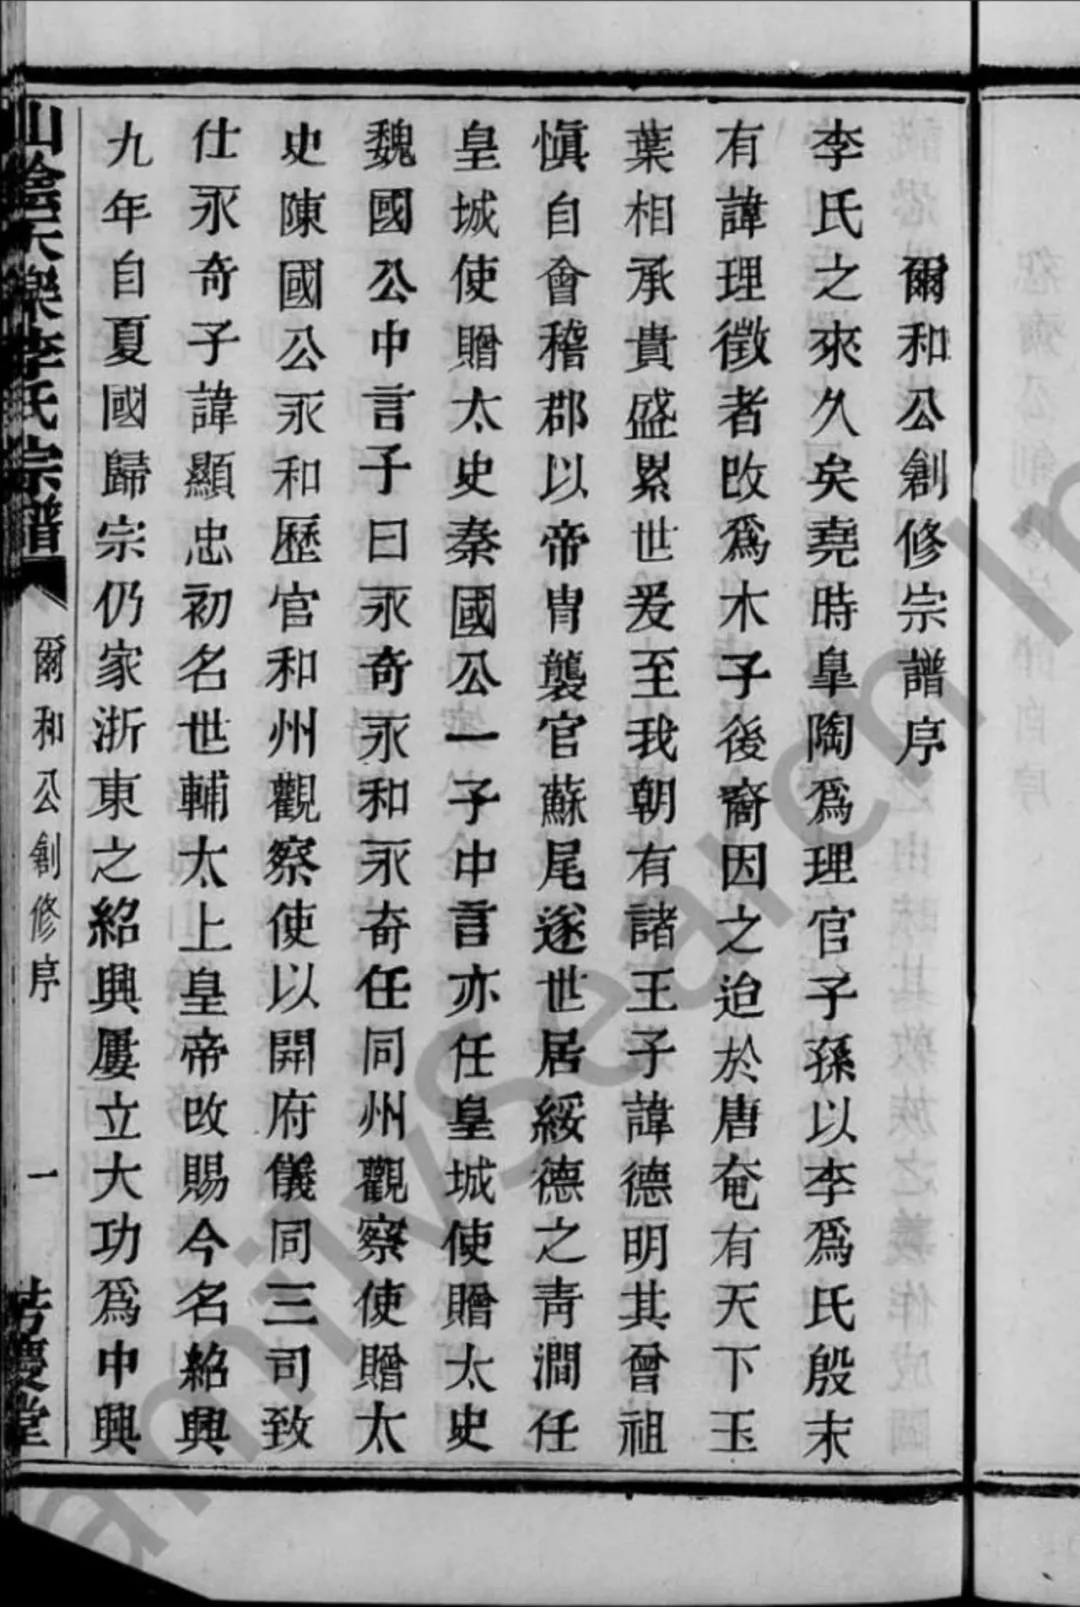 爾和公創修宗譜序
李氏之來久矣堯時臯陶爲理官子孫以李爲氏殷末
有諱理徵者改爲木子後裔因之迨於唐奄有天下玉
葉相承貴盛累世爰至我朝有諸王子諱德明其曾祖
愼自會稽郡以帝冑襲官蘇尾遂世居綏德之靑澗任
皇城使贈太史秦國公一子中言亦任皇城使贈太史
魏國公中言子曰永奇永和永奇任同州觀察使贈太
史陳國公永和歷官和州觀察使以開府儀同三司致
仕永奇子諱顯忠初名世輔太上皇帝改賜今名紹興
九年自夏國歸宗仍家浙東之紹興屢立大功爲中興
山陰天樂李氏宗譜
爾和公創修序
一
慶堂